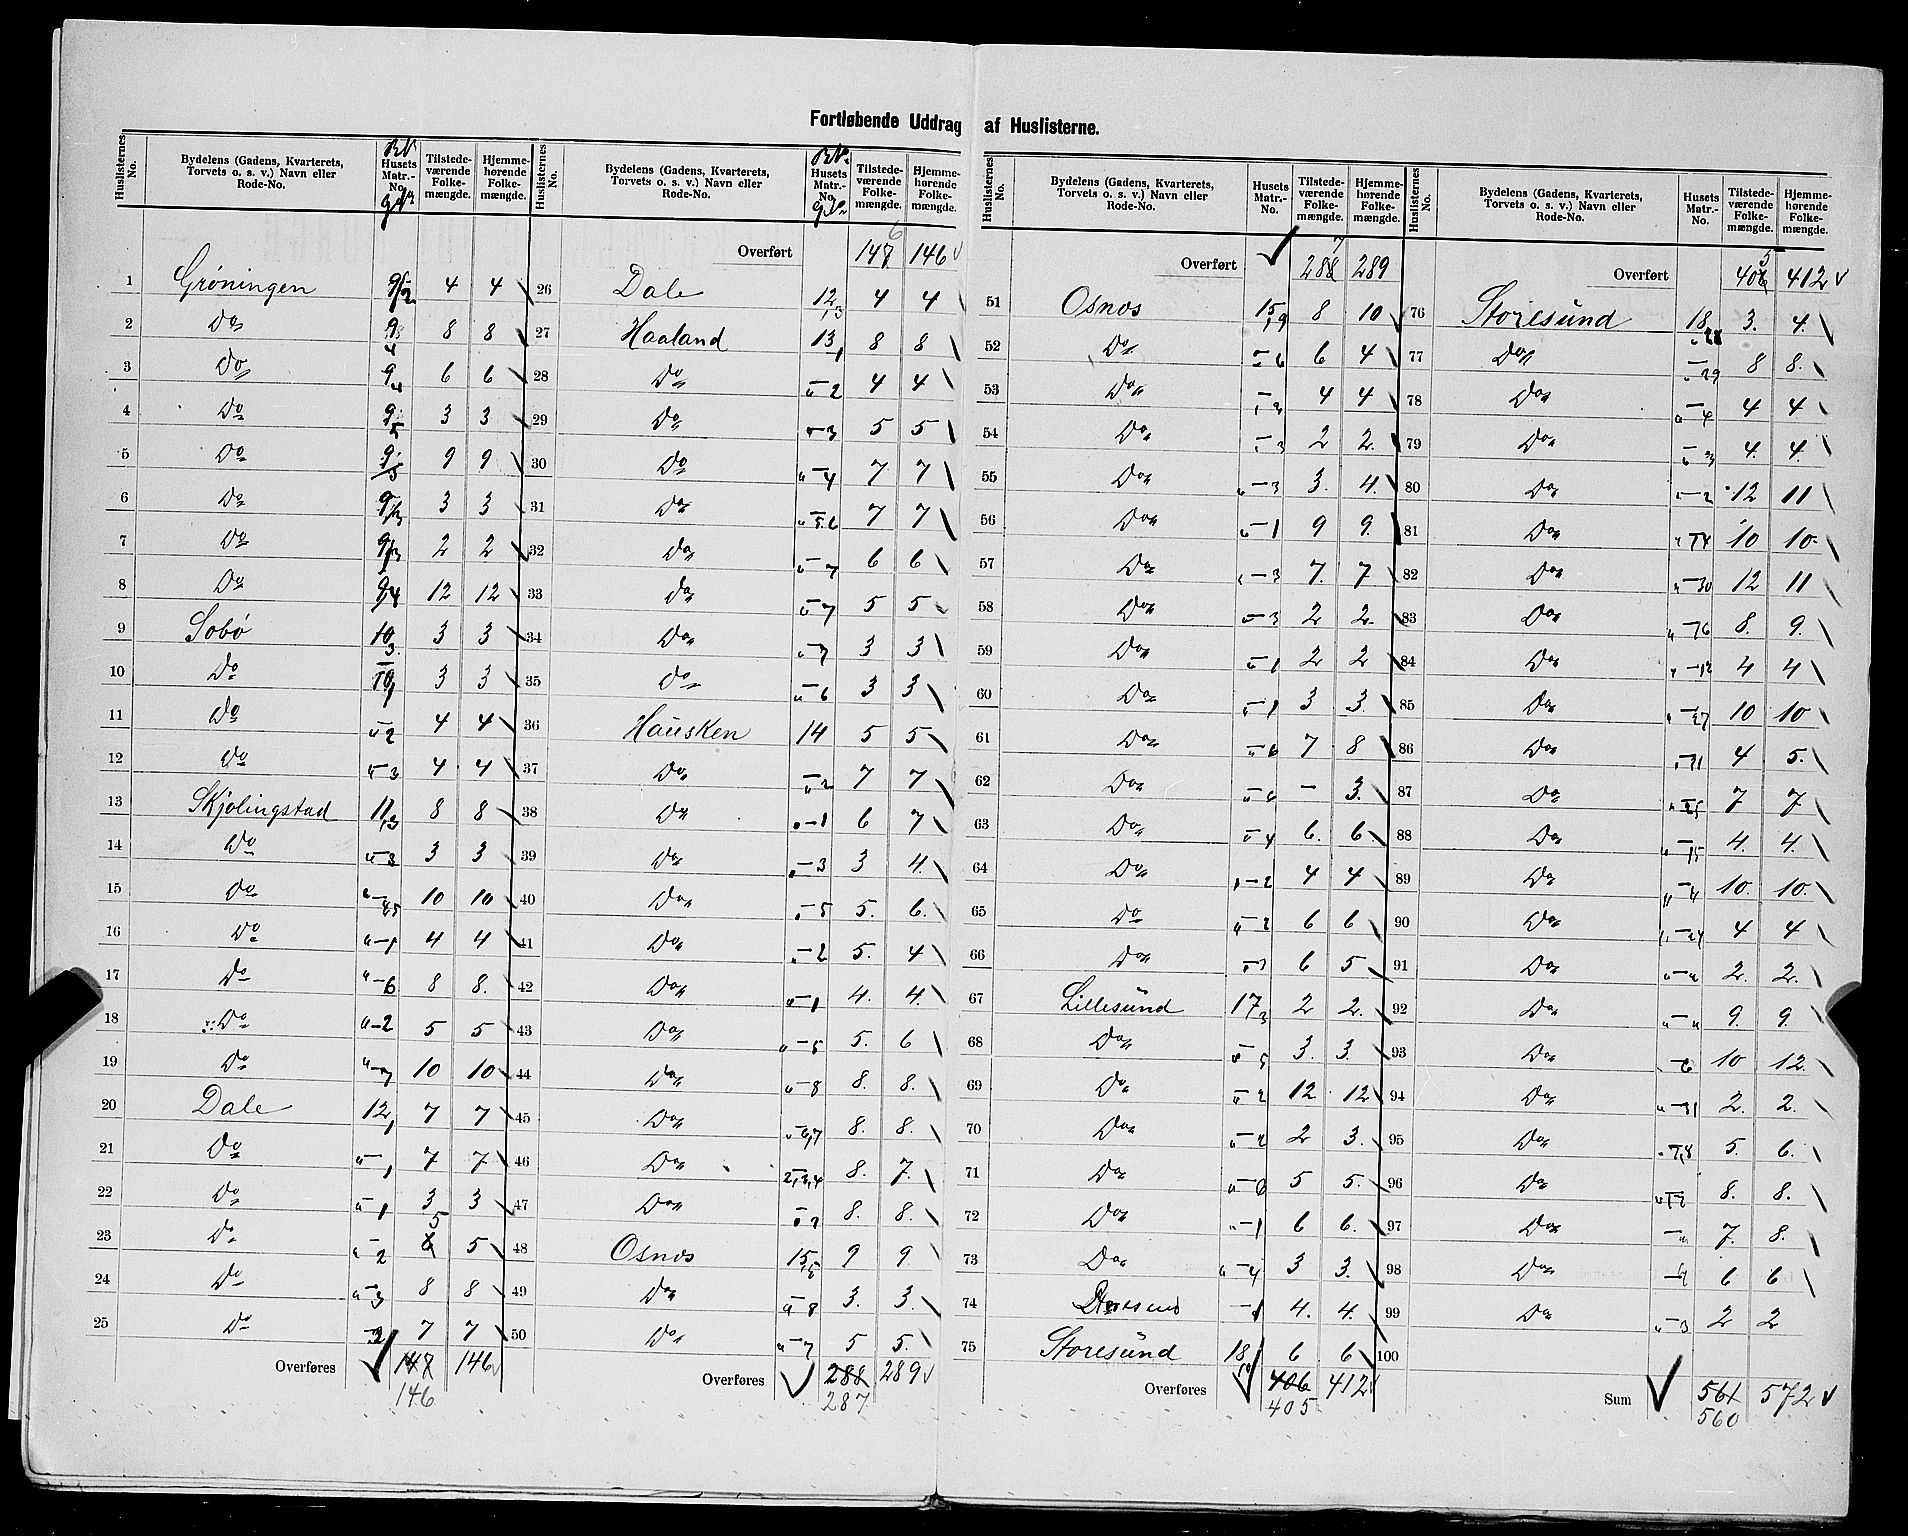 Fortløbende Uddrag af Huslisterne.
Huslisternes No. | Bydelens (Gadens, Kvarterets, Torvets o. s. v.) Navn eller Rode-No. | Husets Matr.-No. | Tilstedeværende Folkemængde. | Hjemmehørende Folkemængde.
1 Grøningen 4 4
2 Do 8 8
3 Do 6 6
4 Do 3 3
5 Do 9 9
6 Do 3 3
7 Do 2 2
8 Do 12 12
9 Sobø 10 3 3 3
10 Do 3 3
11 Do "-2 4 4
12 Do "-3 4 4
13 Skjolingstad 11,3 8 8
14 Do "-3 3 3
15 Do 10 10
16 Do 4 4
17 Do "-6 8 8.
18 Do "-2 5 5
19 Do "-7 10 10
20 Dale 12,1 7 7
21 Do "-1 7 7
22 Do "-1 3 3
23 Do "-2 5 5
24 Do "-3 8 8
25 Do 7 7
Overføres 147 146
146
Huslisternes No. | Bydelens (Gadens, Kvarterets, Torvets o. s. v.) Navn eller Rode-No. | Husets Matr.-No. | Tilstedeværende Folkemængde. | Hjemmehørende Folkemængde.
Overført 147 6 146
26 Dale 12,3 4 4
27 Haaland 13,1 8 8
28 Do "-2 4 4
29 Do "-3 5 5
30 Do "-4 7 7
31 Do "-5.6 7 7
32 Do "-7 6 6
33 Do "-7 5 5
34 Do "-7 3 3
35 Do "-6 3 3
36 Hausken 14 5 5
37 Do "-2 7 7
38 Do "-1 6 7
39 Do "-3 3 4.
40 Do "-5 5. 6.
41 Do "-2 5. 4
42 Do "-1 4. 4.
43 Do "-5 5. 6
44 Do "-8 8. 8.
45 Do "-6,7 8. 8.
46 Do 2,3,4 8. 7.
47 Do 8. 8.
48 Osnæs 9 9.
49 Do "-8 3. 3.
50 Do "-7 5 5.
Overføres 288 289
287
Huslisternes No. | Bydelens (Gadens, Kvarterets, Torvets o. s. v.) Navn eller Rode-No. | Husets Matr.-No. | Tilstedeværende Folkemængde. | Hjemmehørende Folkemængde.
Overført 288 7 289
51 Osnæs 15,9 8 10
52 Do "-6 6 4
53 Do 4 4
54 Do "-3 2 2.
55 Do "-3 3. 4.
56 Do "-1 9 9.
57 Do "-3 7. 7
58 Do "-3 2 2.
59 Do "-1 2 2
60 Do "-1 3 3.
61 Do "-6 7 8
62 Do "-4 - 3.
63 Do "-4 6. 6.
64 Do "-2 4 4
65 Do "-2 6 6
66 Do "-3 6 5
67 Lillesund 17,3 2 2.
68 Do "-5 3. 3.
69 Do "-2 12 12
70 Do "-2 2 3.
71 Do "-6 5 5.
72 Do "-1 6 6.
73 Do "-4 3 3.
74 4. 4.
75 Storesund 18 6 6
Overføres 406 412
405
Huslisternes No. | Bydelens (Gadens, Kvarterets, Torvets o. s. v.) Navn eller Rode-No. | Husets Matr.-No. | Tilstedeværende Folkemængde. | Hjemmehørende Folkemængde.
Overført 406 5 412
76 Storesund 18 3. 4.
77 Do "-29 8 8.
78 Do "-4 4 4
79 Do "-3 4. 4.
80 Do "-2 12 11
81 Do 10 10
82 Do "-30 12 11
83 Do 8. 9.
84 Do "-12 4 4
85 Do "-27 10 10
86 Do 4 5.
87 Do 7 7
88 Do "-15 4. 4.
89 Do "-4 10. 10.
90 Do 4 4
91 Do 2. 2.
92 Do 9. 9.
93 Do 10 12.
94 Do 2. 2.
95 Do 5. 6.
96 Do 8. 8.
97 Do 7. 8.
98 Do 6 6
99 Do "-3 2 2
100
Sum 561 572
560